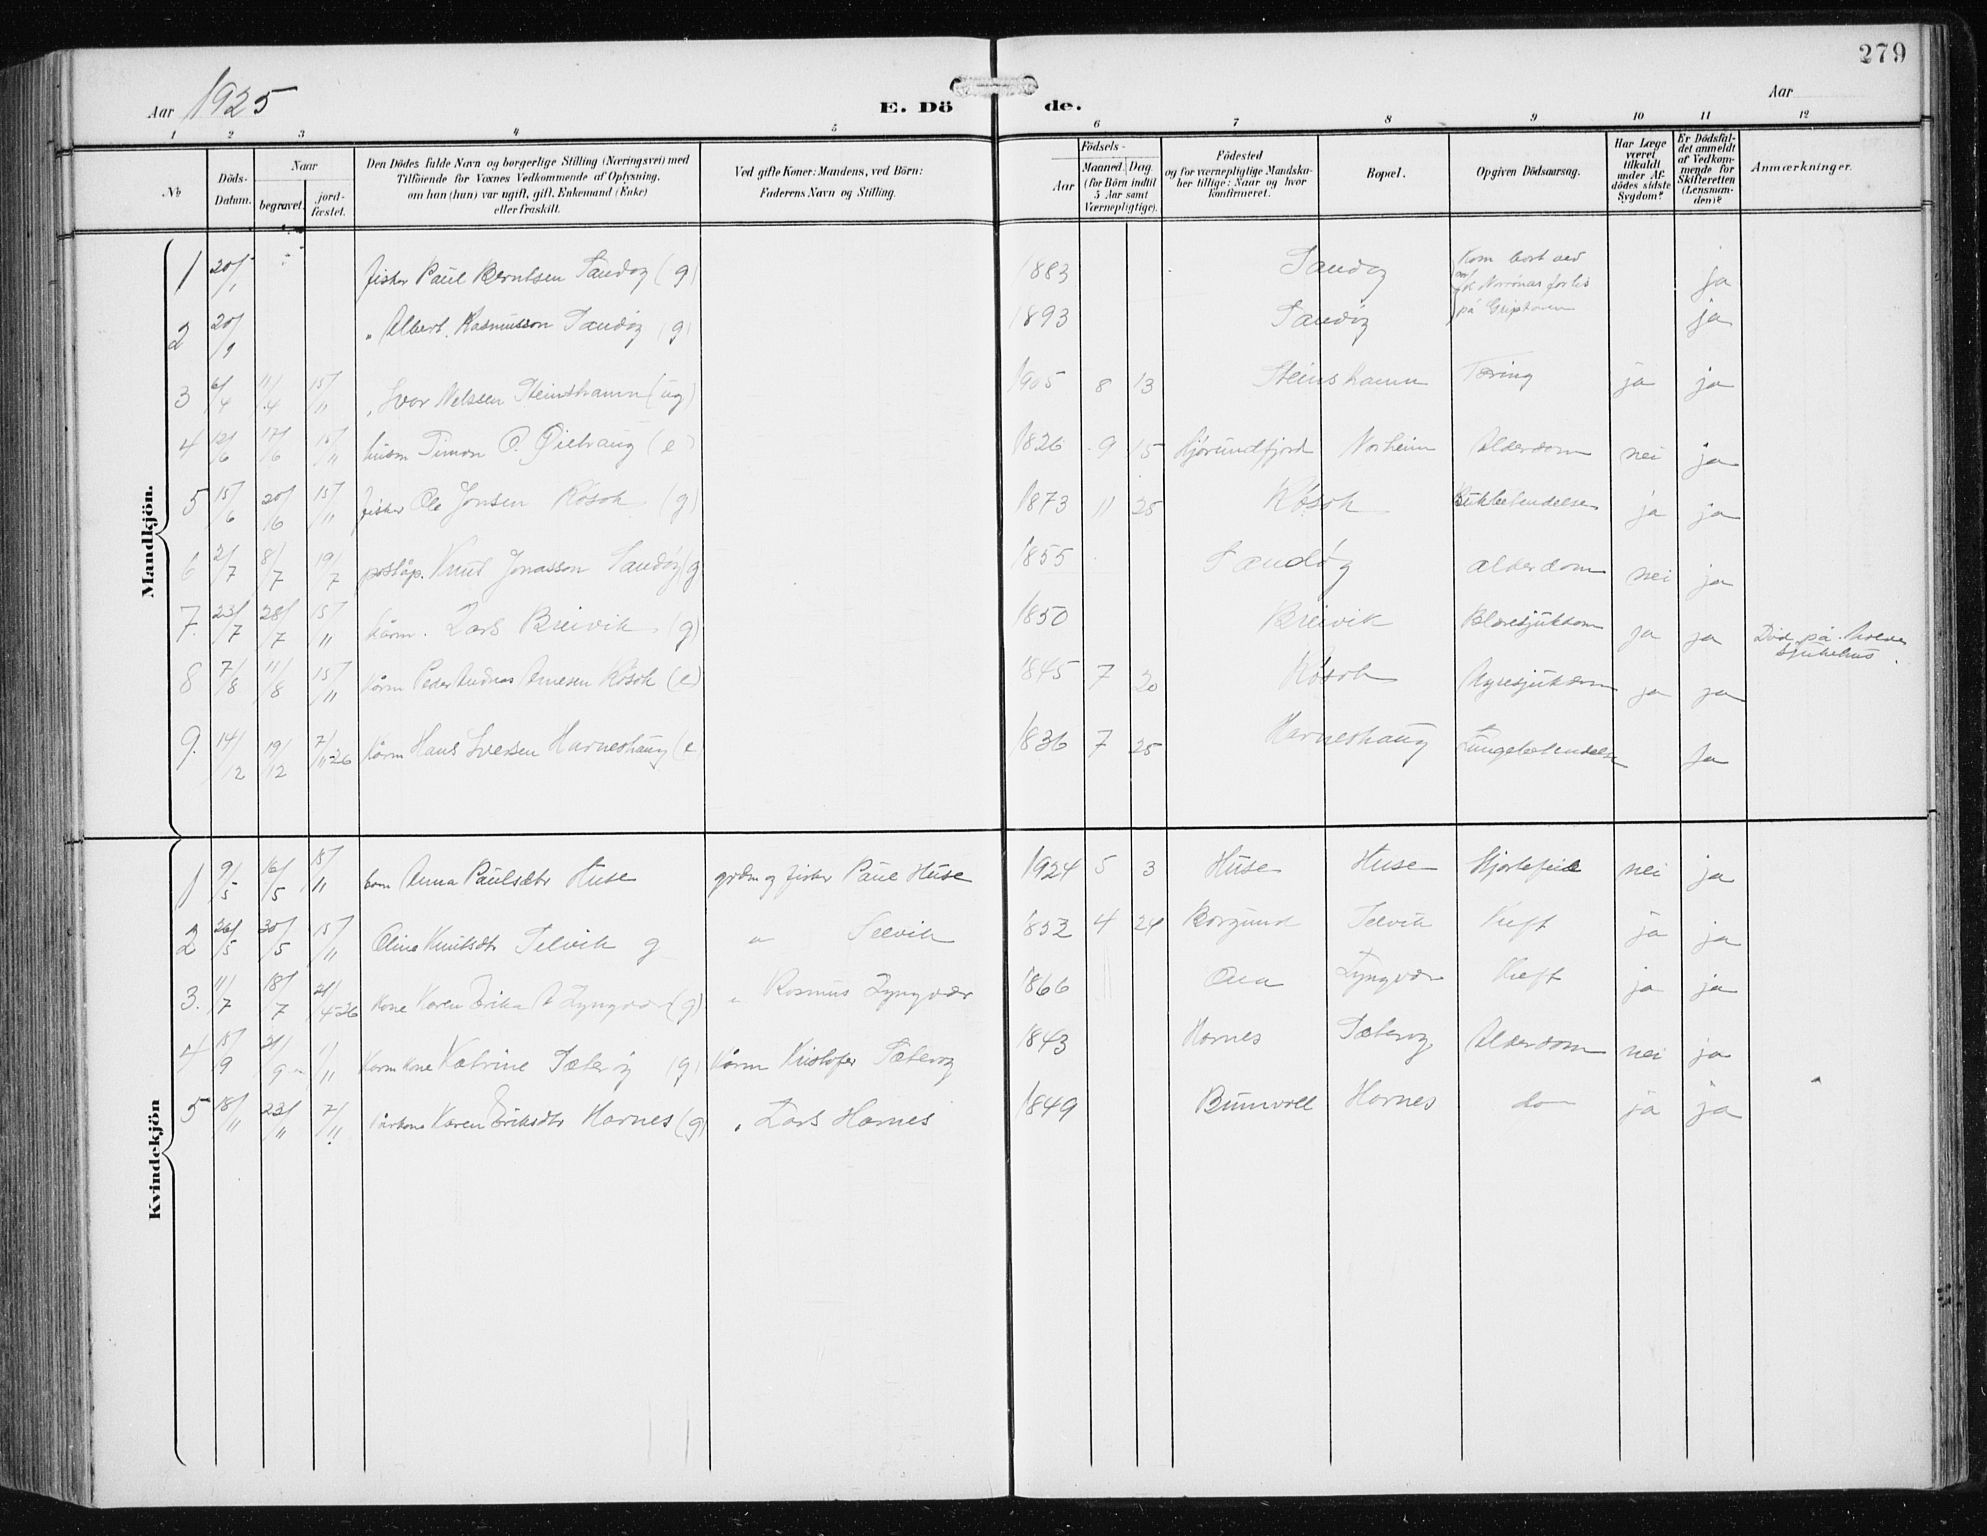 279
Aar 1925
E. Dö de.
Aar
1 2 3 4 5 6 7 8 9 10 11 12
No
Döds-Datum.
Naar
begravet.
jord-fæstet.
Den Dödes fulde Navn og borgerlige Stilling (Næringsvei) med
Tilföiende for Voxnes Vedkommende af Oplysning,
om han (hun) var ugift, gift, Enkemand (Enke)
eller fraskilt.
Ved gifte Koner: Mandens, ved Börn:
Faderens Navn og Stilling.
Födsels-
Aar
Maaned. Dag.
(for Börn indtil
5 Aar samt
Værnepligtige).
Födested
og for værnepligtige Mandska-
ber tillige: Naar og hvor
konfirmeret.
Bopæl.
Opgiven Dödsaarsag.
Har Læge
været
tilkaldt
under Af-
dödes sidste
Sygdom?
Er Dödsfal-
det anmeldt
af Vedkom-
mende for
Skifteretten
(Lensman-
den)?
Anmærkninger.
Mandkjön.
1 20/1 fisker Paul Berntsen Sandøy (g) 1883 Sandøy Kom bort ved forlis ja
2 20/ " Albert Rasmusson Sandøy (g) 1893 Sandøy på Griphaven ja
3 6/4 11/4 15/11 " Ivar Nelssen Steinshamn (ug) 1905 8 13 Steinshamn Tæring ja ja
4 12/6 17/6 15/11 husm Timon O. (e) 1826 9 15 Hjørundfjord Norheim Alderdom nei ja
5 15/6 20/6 15/11 fisker Ole Jonsen Røsok (g) 1873 11 25 Røsok Bukbetendelse ja ja
6 2/7 8/7 19/7 poståp. Knut Jonasson Sandøy (g 1855 Sandøy alderdom nei ja
7. 23/7 28/7 15/11 kårm. Lars Breivik (g) 1850 Breivik Blæresjukdom ja ja Död på Molde Sjukehus.
8 7/8 11/8 15/11 kårm Peder Andreas Arnesen Røsok (e) 1845 7 20 Røsok Nyresjukdom ja ja
9. 14/12 19/12 7/11-26 Kårm Hans Iversen Harneshaug (e 1836 7 25 Harneshaug Lungebetendelse ja
Kvindekjön
1 9/5 16/5 15/11 barn Anna Paulsdtr Huse grdm og fisker Paul Huse 1924 5 3 Huse Huse Hjertefeil nei ja
2 26/5 30/5 15/11 Oline Knutsdtr Selvik g " Selvik 1852 4 24 Borgund Selvik Kreft ja ja
3. 11/7 18/7 21/4-26 Kone Karen Erika Lyngvær (g) " Rasmus Lyngvær 1866 Lyngvær Kreft ja ja
4 15/9 21/9 1/11 Kårm kone Katrine Sæterøy (g) Kårm Kristofer Sæterøy 1843 Harnes Sæterøy Alderdom nei ja
5 18/11 23/11 7/11 kårkone Karen Eriksdtr Harnes (g) " Lars Harnes 1849 Bunvoll Harnes do ja ja